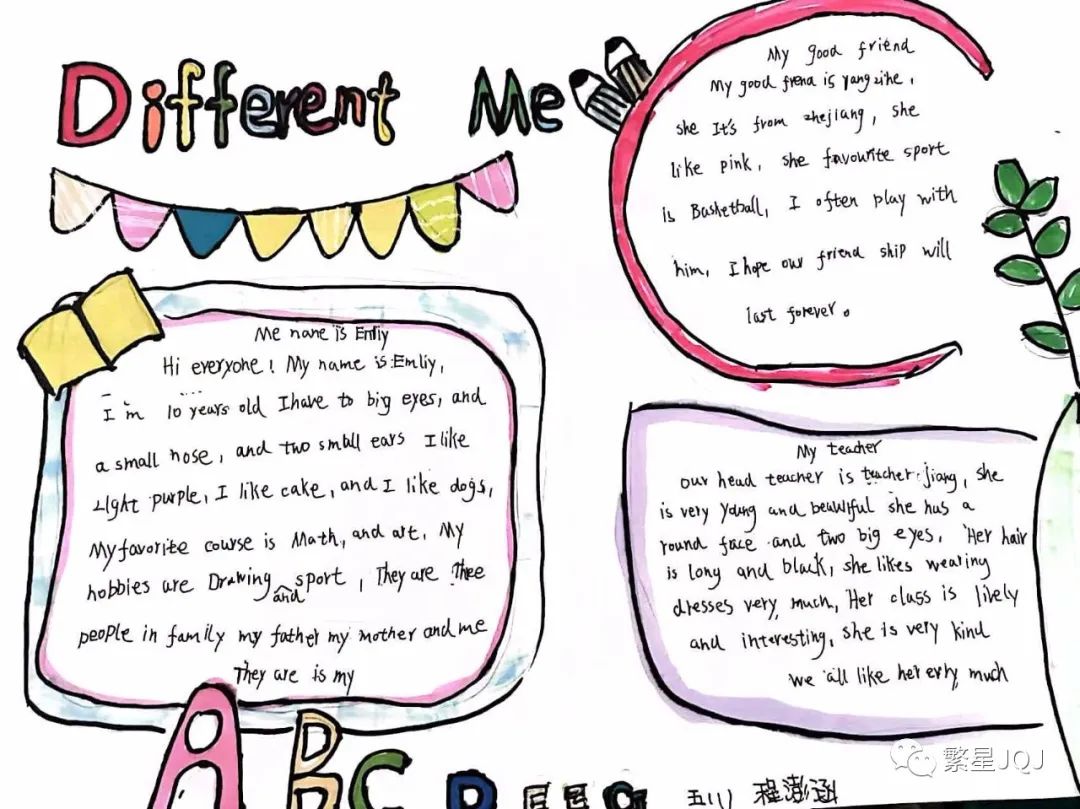 Different Me
My good friend
My good frena is yangzihe,
she It's from zhejiang, she
like pink, she favourite sport
is Basketball, I often play with
him, I hope our friend ship will
last forever。
Me name is Emliy
Hi everyone! My name is Emliy,
I'm 10 years old I have to big eyes, and
a small nose, and two small ears I like
Light purple, I like cake, and I like dogs,
My favorite course is Math, and art, My
hobbies are Drawing and sport, They are Thee
people in family my father my mother and me
They are is my
My teacher
our head teacher is teacher jiang, she
is very young and beuutiful she has a
round face and two big eyes, Her hair
is long and black, she likes wearing
dresses very much, Her class is lively
and interesting, she is very kind
we all like her erty much
ABC D E F G
五(1) 程澎涵
繁星JQJ